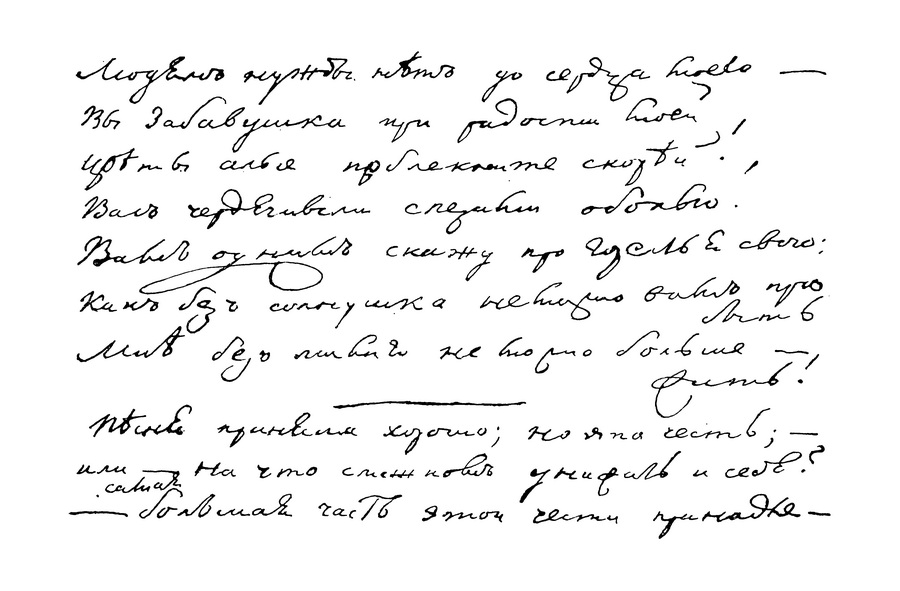 Людямъ нужды нѣтъ до сердца моего —
Вы Забавушка при радости моей,
Цвѣты алые поблекните скорѣй!
Вамъ
Вамъ однимъ скажу про горе свое:
Какъ безъ солнушка не можно вамъ про
быть
Мнѣ безъ милаго не можно больше —
жить!
Пѣсню приняли хорошо; но эта честь; —
или — на что смѣшновъ унижать и себе?
самая
— большая часть этой чести принадле—